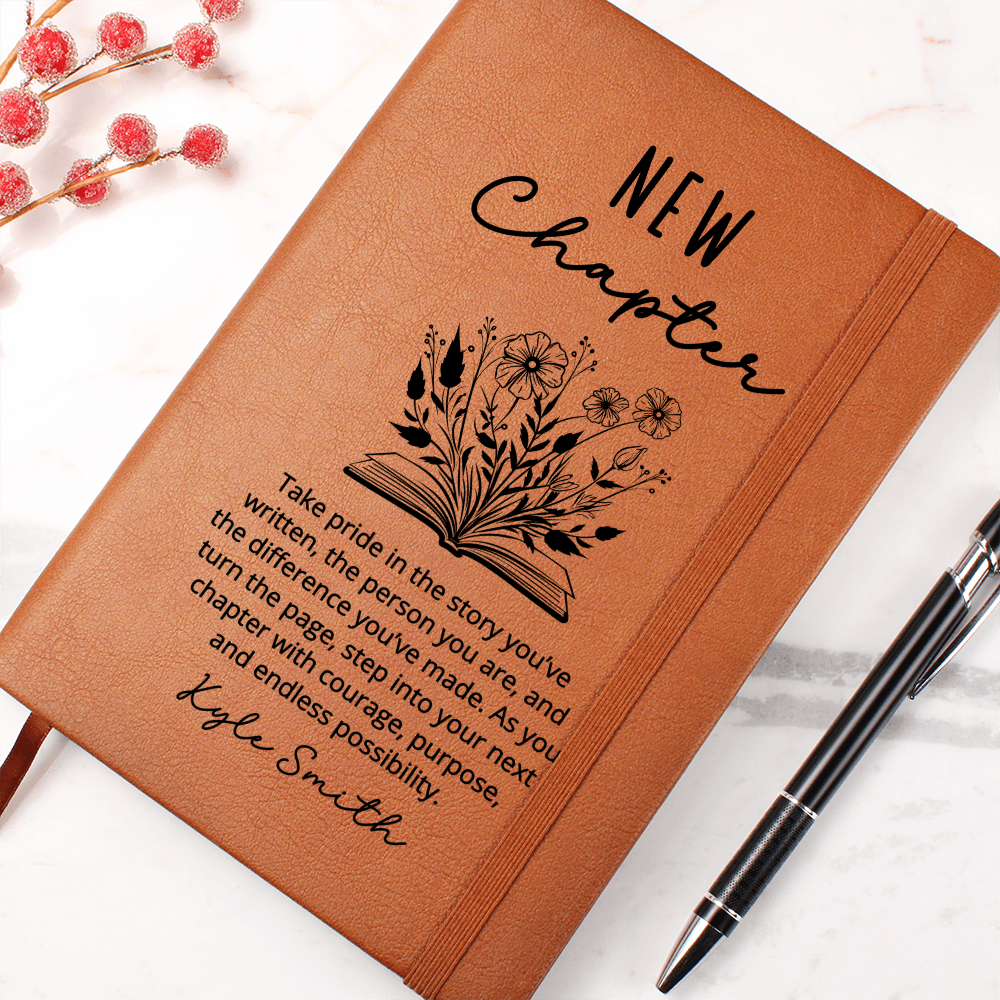 NEW
Chapter
Take pride in the story you've
written, the person you are, and
the difference you've made. As you
turn the page, step into your next
chapter with courage, purpose,
and endless possibility.
Kyle Smith